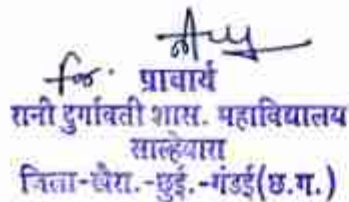 for. प्राचार्य
रानी दुर्गावती शास. महाविद्यालय
साल्हेवारा
जिला-खैरा.-छुई.-गंडई(छ.ग.)